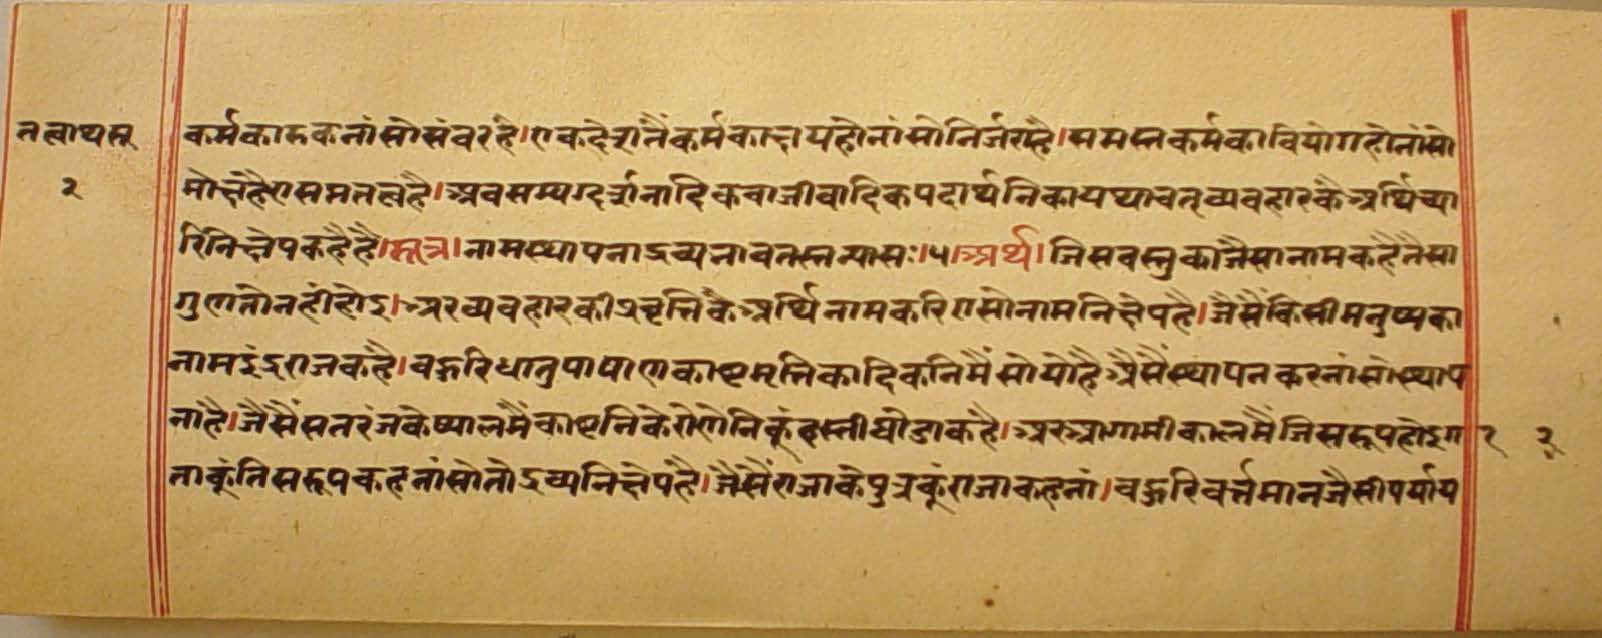 तत्वाथसू
२
कर्मकारुकनांसोसंवरहै।एकदेशनैकर्मकाक्षयहोनांसोनिर्जराहै।समस्तकर्मकावियोगहोनांसो
मोक्षहैएसप्ततत्वहै।अवसम्यग्दर्शनादिकवाजीवादिकपदार्थनिकायथावत्व्यवहारकैअर्थिच्या
रिनिक्षेपकहैहै।सूत्र।नामस्थापनाद्रव्यनावतस्तन्यासः।५।अर्थ।जिसवस्तुकाजैसानामकहैतैसा
गुणतोनहीहोइ।अरव्यवहारकीप्रवृत्तिकैअर्थिनामकरिएसोनामनिक्षेपहै।जैसैंकिसीमनुष्यका
नामइंद्रराजकहै।वहुरिधातुपाषाणकाष्टमृत्तिकादिकनिमैंसोयोहैअैसैंस्थापनकरनांसोस्थाप
नाहै।जैसैंसतरंजकेष्यालमैंकाष्टनिकेगोटोनिकूंहस्तीघोडाकहै।अरुआगामीकालमैंजिसरूपहोइगा
ताकूंतिसरूपकहनांसोतोद्रव्यनिक्षेपहै।जैसैंराजाकेपुत्रकूंराजाकहनां।वहुरिवर्त्तमानजैसीपर्याय
२